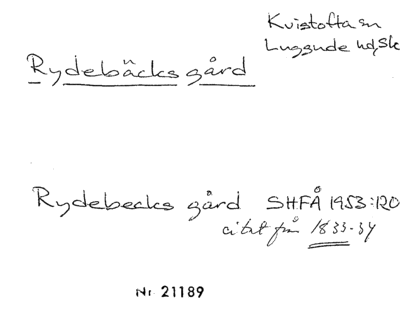 Kvistofta sn
Luggude hd, Sk
Rydebäcks gård
Rydebecks gård SHFÅ 1953:120
citat från 1833-34
Nr 21189